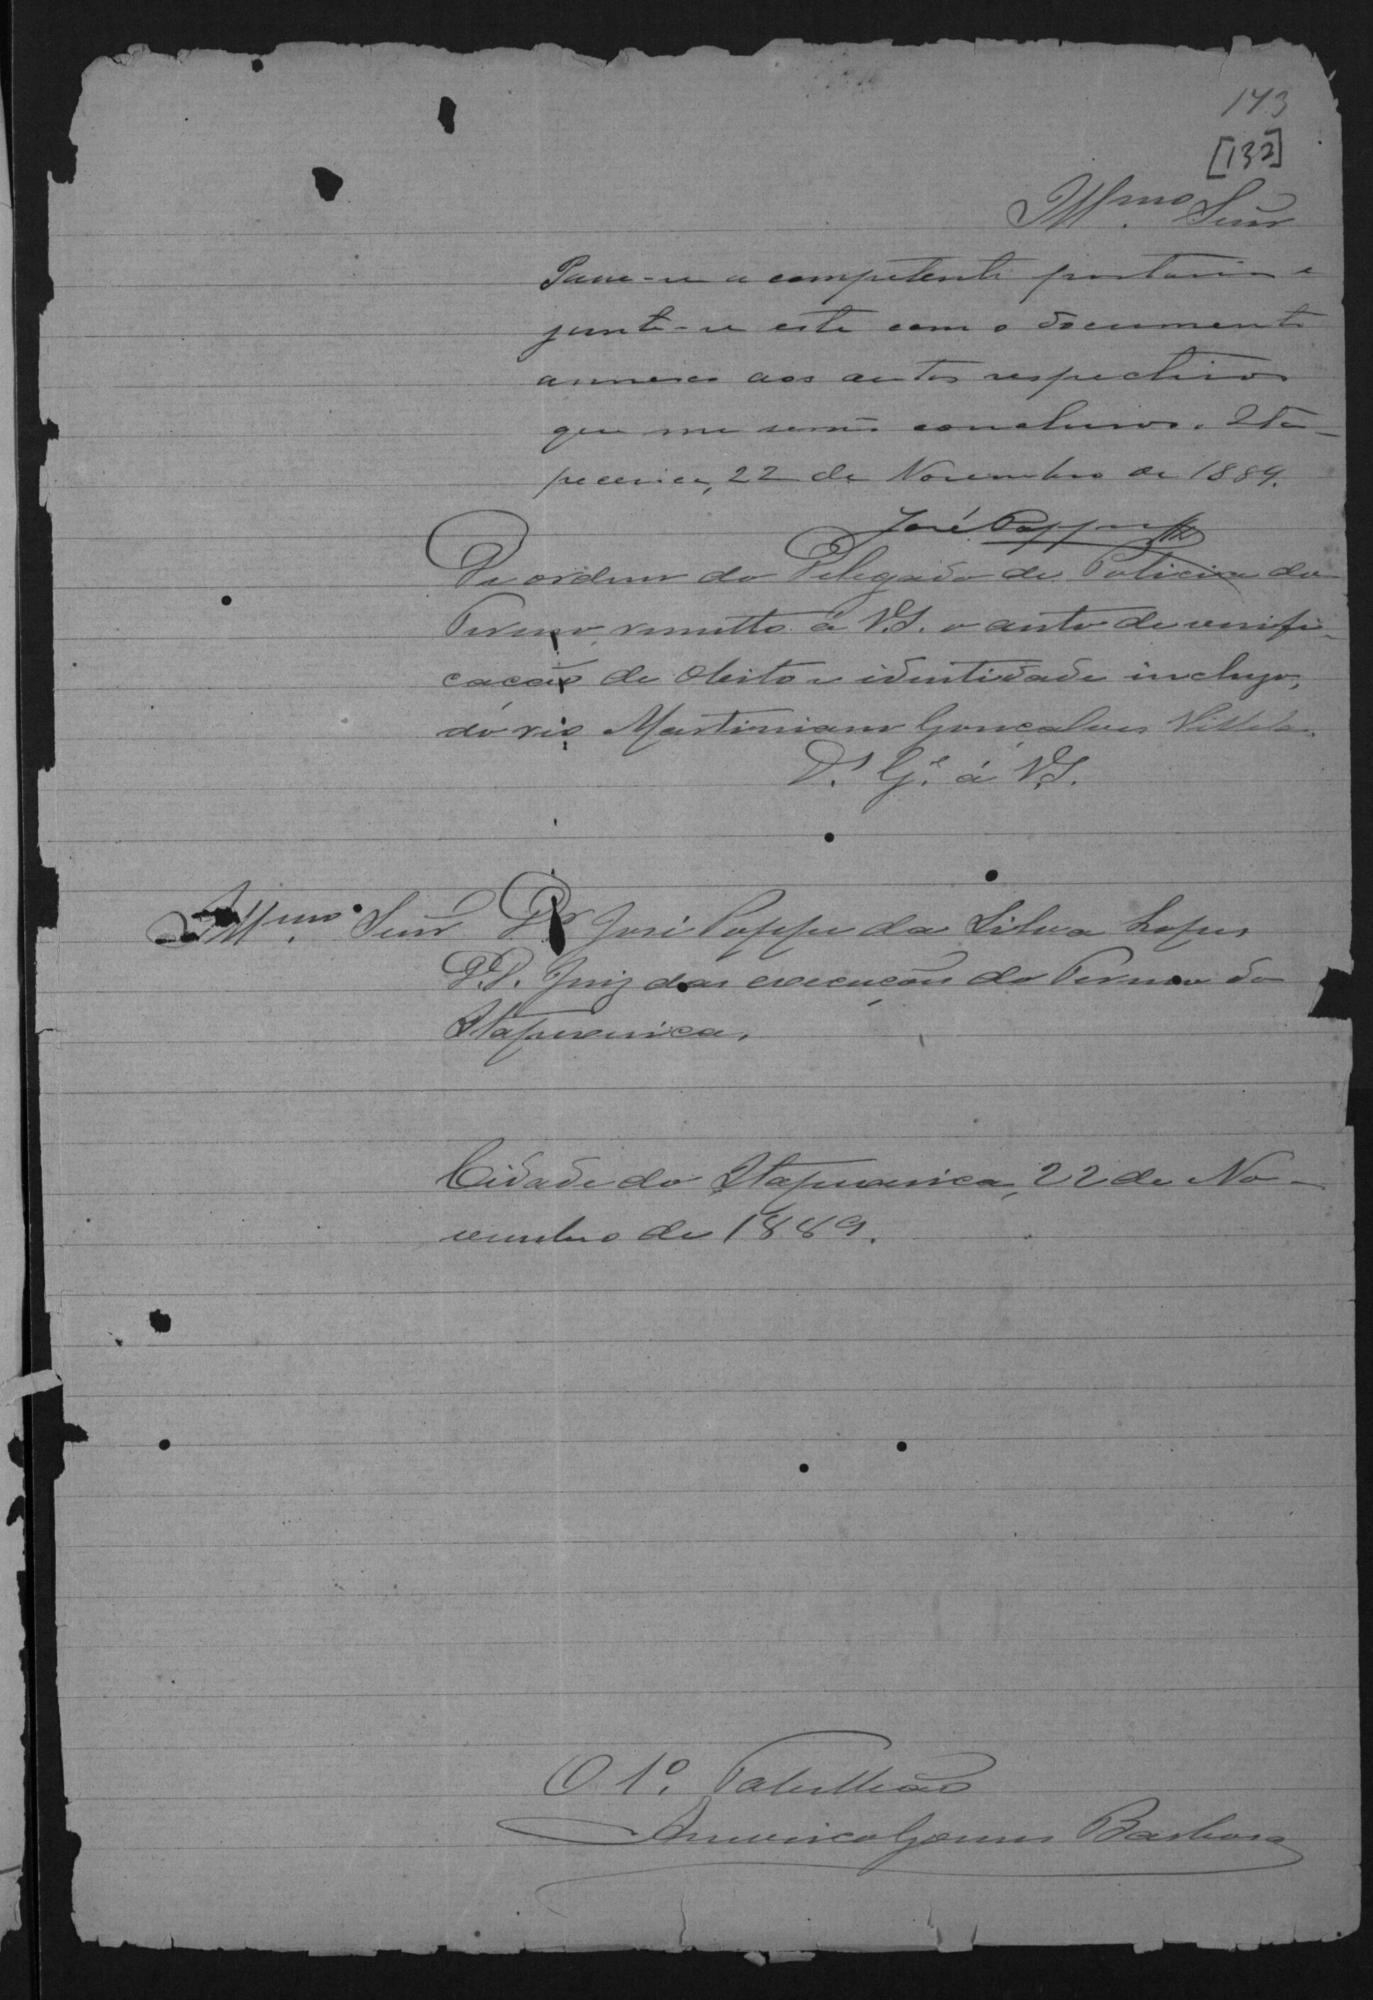 173
[132]
Illmo. Snr
Passe-se a competente portaria e
junte-se este com o documento
annexo aos autos respectivos
que me serão conclusos. Ita-
pecerica, 22 de Novembro de 1889.
José Poppe
De ordem do Delegado de Policia do
Termo, remetto á V.S. o auto de verifi-
cação de obito e identidade incluso,
do réo Martiniano Gonçalves Villela.
D.s G.e á V.S.
Illmo. Snr Dr José Poppe da Silva Lopes
D.D. Juiz das execuções do Termo de
Itapecerica.
Cidade de Itapecerica, 22 de No-
vembro de 1889.
O 1º. Tabellião
Americo Gomes Barbosa